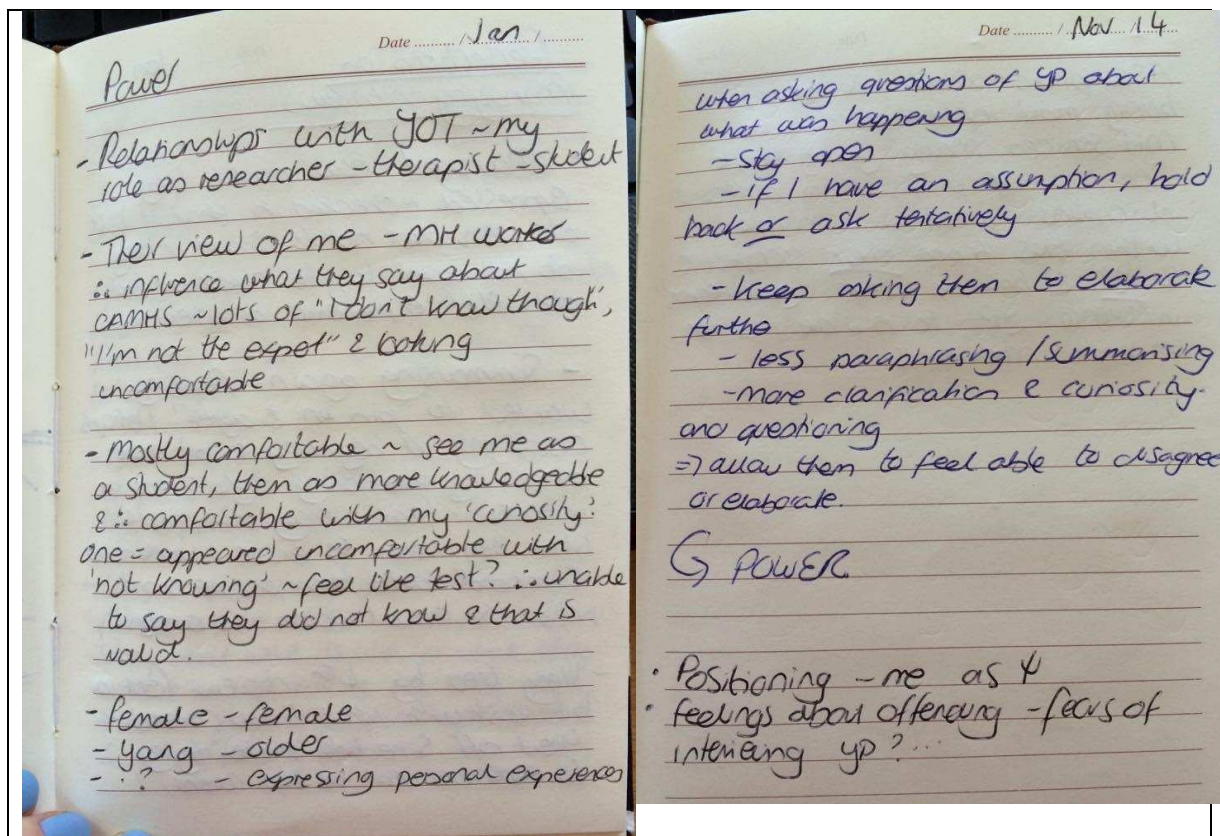 Date ........ / Jan / ........
Power
- Relationships with YOT ~ my
role as researcher - therapist - student
- Their view of me - MH worker
∴ influence what they say about
CAMHS ~ lots of "I don't know though",
"I'm not the expert" & looking
uncomfortable
- Mostly comfortable ~ see me as
a student, them as more knowledgeable
& ∴ comfortable with my 'curiosity'.
One = appeared uncomfortable with
'not knowing' ~ feel like test? ∴ unable
to say they did not know & that is
valid.
- female - female
- young - older
- ∴? - expressing personal experiences
Date ........ / Nov / 14
when asking questions of YP about
what was happening
- Stay open
- if I have an assumption, hold
back or ask tentatively
- Keep asking them to elaborate
further
- less paraphrasing / summarising
- More clarification & curiosity.
and questioning
⇒ allow them to feel able to disagree
or elaborate.
↪ POWER
• Positioning - me as Ψ
• feelings about offending - fears of
interviewing YP?...